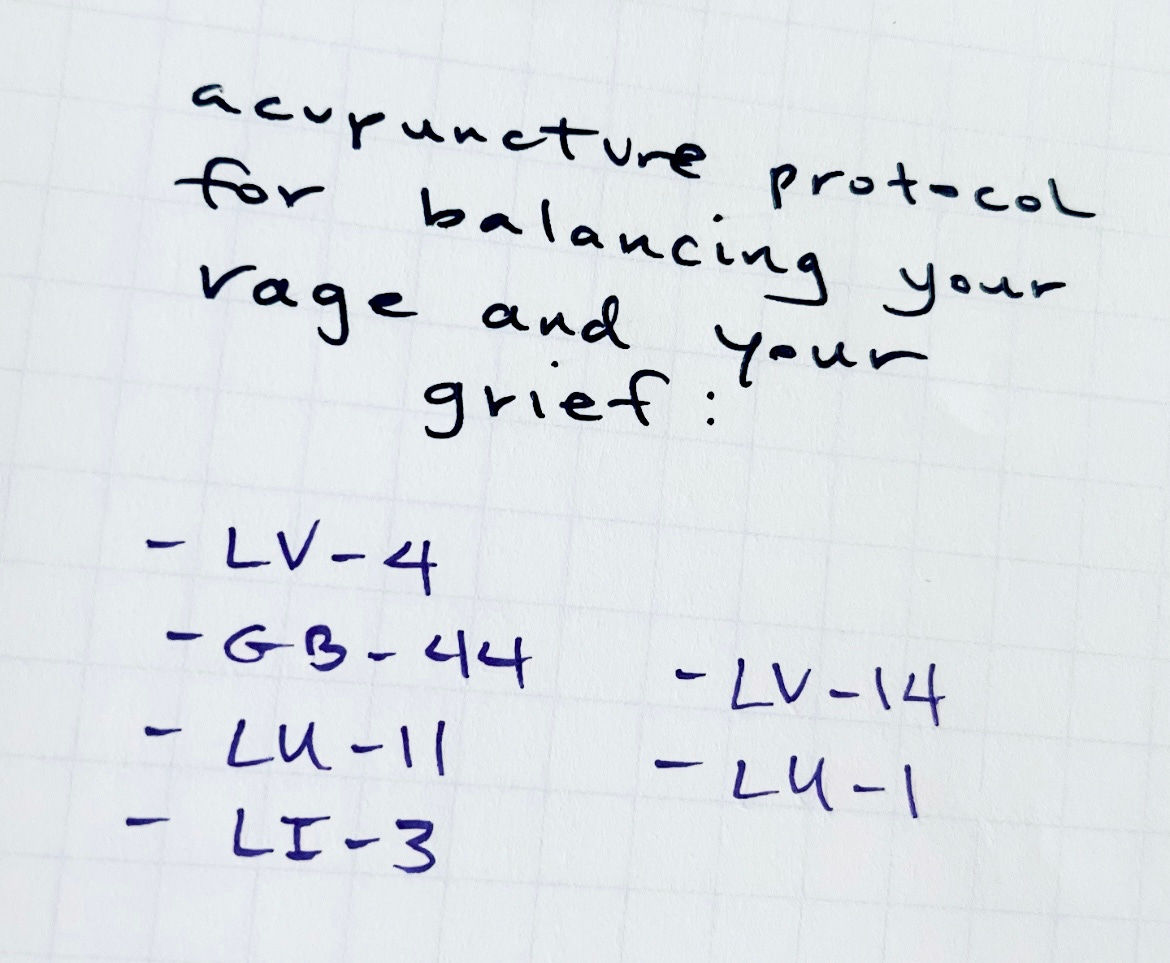 acupuncture protocol
for balancing your
rage and your
grief:
- LV-4
- GB-44
- LU-11
- LI-3
- LV-14
- LU-1